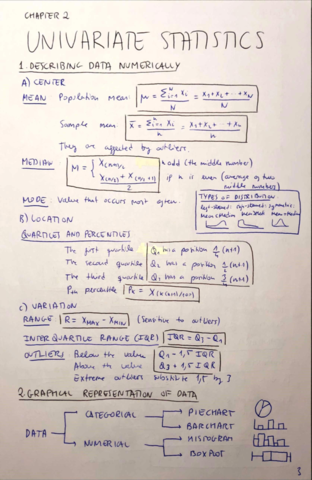 CHAPTER 2
UNIVARIATE STATISTICS
1. DESCRIBING DATA NUMERICALLY
A) CENTER
MEAN Population mean μ = Σᵢ₌₁ᴺ xᵢ / N = x₁+x₂+...+x_N / N
Sample mean x̄ = Σᵢ₌₁ⁿ xᵢ / n = x₁+x₂+...+xₙ / n
They are affected by outliers.
MEDIAN M = { n odd (the middle number)
2 if n is even (average of two middle numbers)
MODE: Value that occurs most often.
TYPES OF DISTRIBUTION
B) LOCATION
QUARTILES AND PERCENTILES
The first quartile Q₁ has a position 1/4 (n+1)
The second quartile Q₂ has a position (n+1)
The third quartile Q₃ has a position 3/4 (n+1)
percentile
C) VARIATION
RANGE R = X_MAX - X_MIN (Sensitive to outliers)
INTERQUARTILE RANGE (IQR) IQR = Q₃ - Q₁
OUTLIERS Below the value Q₁ - 1,5 IQR
Above the value Q₃ + 1,5 IQR
Extreme outliers substitute 1,5 by 3
2. GRAPHICAL REPRESENTATION OF DATA
CATEGORICAL PIECHART
BARCHART
DATA
NUMERICAL HISTOGRAM
BOXPLOT
3